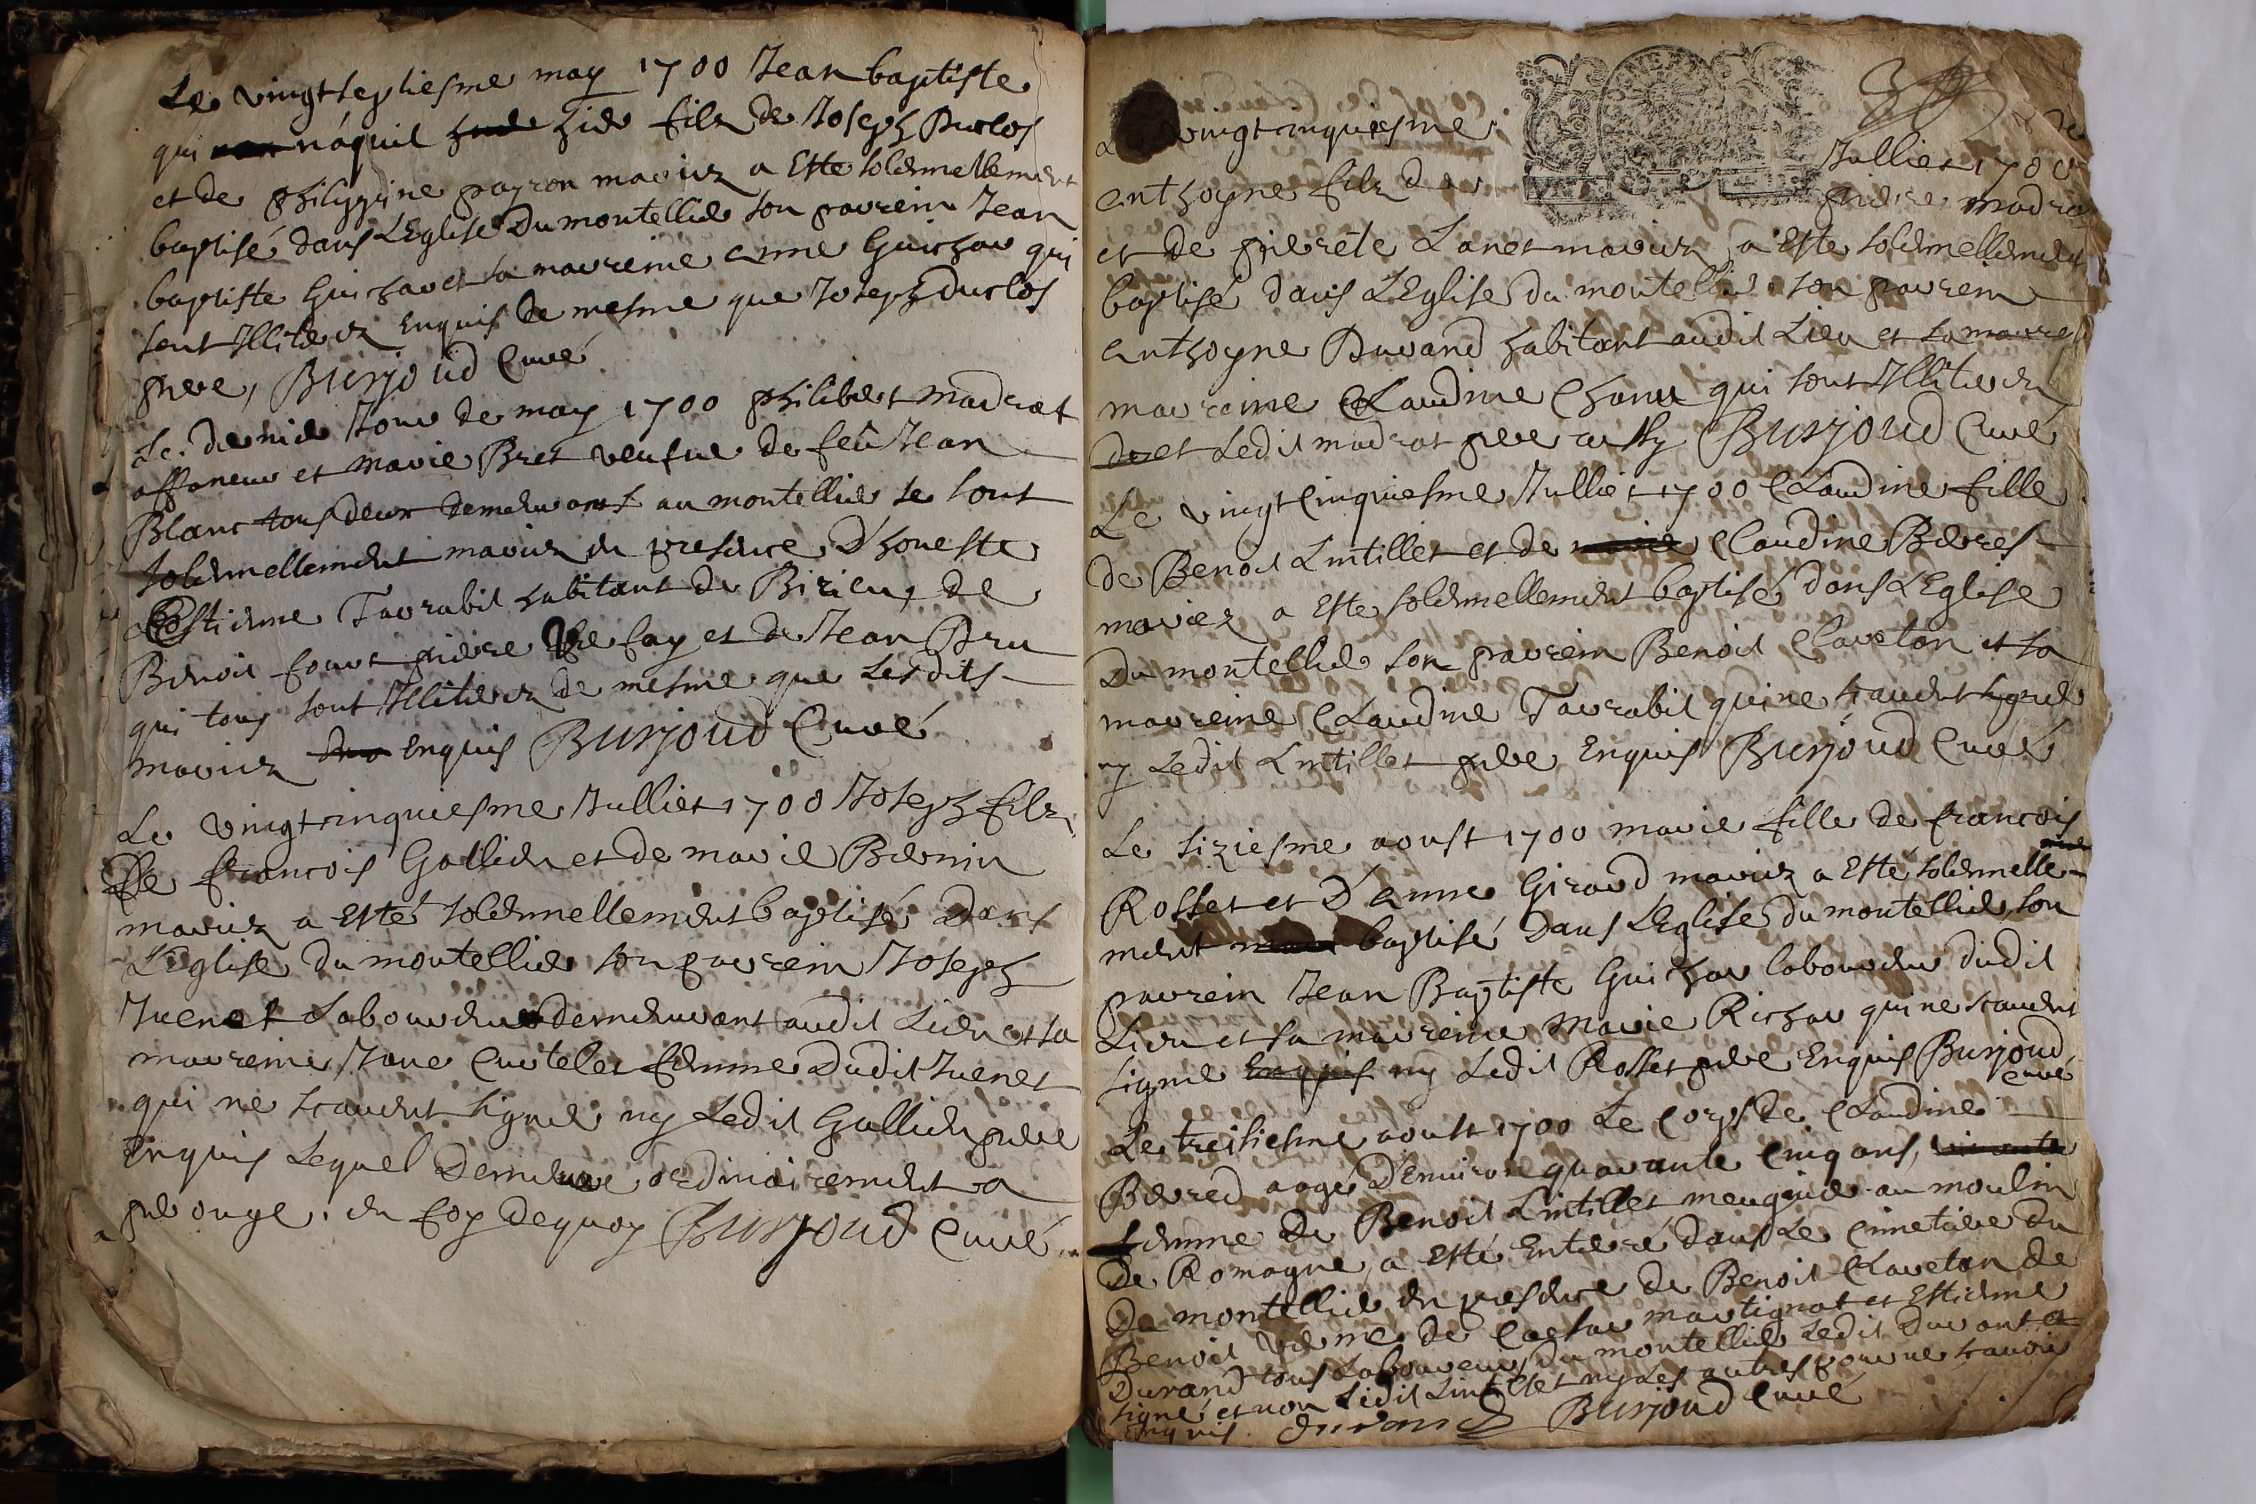 Le vingtseptiesme may 1700 Jean baptiste
qui náquit hier filz de Joseph Duclos
et de philippine payron mariez a Esté solennellement
baptisé dans L'Eglise Du montellier son parrein Jean
baptiste Guichar et sa marreine anne Guichar qui
sont Illiterez Enquis de mesme que Joseph Duclos
pere, Burjoud Curé
Le dernier Jour de may 1700 philibert madrat
affaneur et marie Bret veufue de feû Jean
Blanc tous deux demeurants au montellier se sont
solennellement mariez en presence D'honeste
Estienne Tarrabit habitant de Birieu, de
Benoit pierre De fay et de Jean Dru
qui tous sont Illiterez de mesme que Lesdits
mariez Enquis Burjoud Curé
Le vingtcinquiesme Julliet 1700 Joseph filz
De francois Gallien et de marie Bernin
mariez a Esté solennellement baptisé Dans
L'Eglise du montellier son parrein Joseph
Juenet Laboureur demeurant audit Lieu et sa
marreine Jane Curtelet femme Dudit Juenet
qui ne scauent signer ny Ledit Gallien pere
Enquis Lequel Demeure ordinairement a
perouge. en foy dequoy Burjoud Curé
vingtcinquiesme Julliet 1700
anthoyne filz de pierre madrat
et de pierrete Lanet mariez a Este solennellement
baptisé dans L'Eglise du montellier son parrein
anthoyne Durand habitant audit Lieu et sa
marreine Claudine Chanu qui sont Illiterez
et Ledit madrat pere aussy Burjoud Curé
Le vingt Cinquiesme Julliet 1700 Claudine fille
de Benoit Lintillet et de Claudine Berret
mariez a Este solennellement baptisé dans L'Eglise
Du montellier son parrein Benoit Claveton et sa
marreine Claudine Tarrabit qui ne scauent signer
ny Ledit Lintillet pere Enquis Burjoud Curé
Le siziesme aoust 1700 marie fille de francois
Rosset et D'anne Giraud mariez a Esté solennelle-
ment baptisé Dans L'Eglise du montellier, son
parrein Jean Baptiste Guichar laboureur dudit
Lieu et sa marreine Marie Richar qui ne scauent
signe Enquis ny Ledit Rosset pere Enquis Burjoud
Curé
Le treisiesme aoust 1700 Le Corps de Claudine
Berred aagé D'Enuiron quarante Cinq ans,
femme De Benoit Lintillet meugnier au moulin
De Romagne, a Esté Enterré dans Le Cimetiere Du
Du montellier en presence de Benoit Claveton de
Benoit Verne de Caesar martignat et Estienne
Durand tous Laboureurs du montellier Ledit Durant a
signé et non Ledit Lintillet ny Les autres pour ne scauoir
Enquis. durand Burjoud Curé